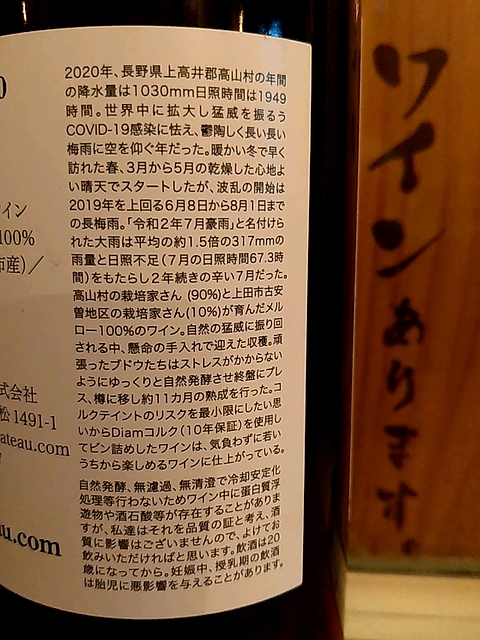 2020年、長野県上高井郡高山村の年間
の降水量は1030mm日照時間は1949
時間。世界中に拡大し猛威を振るう
COVID-19感染に怯え、鬱陶しく長い長い
梅雨に空を仰ぐ年だった。暖かい冬で早く
訪れた春、3月から5月の乾燥した心地よ
い晴天でスタートしたが、波乱の開始は
2019年を上回る6月8日から8月1日まで
の長梅雨。「令和2年7月豪雨」と名付けら
れた大雨は平均の約1.5倍の317mmの
雨量と日照不足(7月の日照時間67.3時
間)をもたらし2年続きの辛い7月だった。
高山村の栽培家さん(90%)と上田市古安
曽地区の栽培家さん(10%)が育んだメル
ロー100%のワイン。自然の猛威に振り回
される中、懸命の手入れで迎えた収穫。頑
張ったブドウたちはストレスがかからない
ようにゆっくりと自然発酵させ終盤にプレ
ス、樽に移し約11カ月の熟成を行った。コ
ルクテイントのリスクを最小限にしたい思
いからDiamコルク(10年保証)を使用し
てビン詰めしたワインは、気負わずに若い
うちから楽しめるワインに仕上がっている。
自然発酵、無濾過、無清澄で冷却安定化
処理等行わないためワイン中に蛋白質浮
遊物や酒石酸等が存在することがありま
すが、私達はそれを品質の証と考え、酒
質に影響はございませんので、よけてお
飲みいただければと思います。飲酒は20
歳になってから。妊娠中、授乳期の飲酒
は胎児に悪影響を与えることがあります。
0
イン
100%
市産)／
式会社
松 1491-1
ateau.com
au.com
ワインあります。